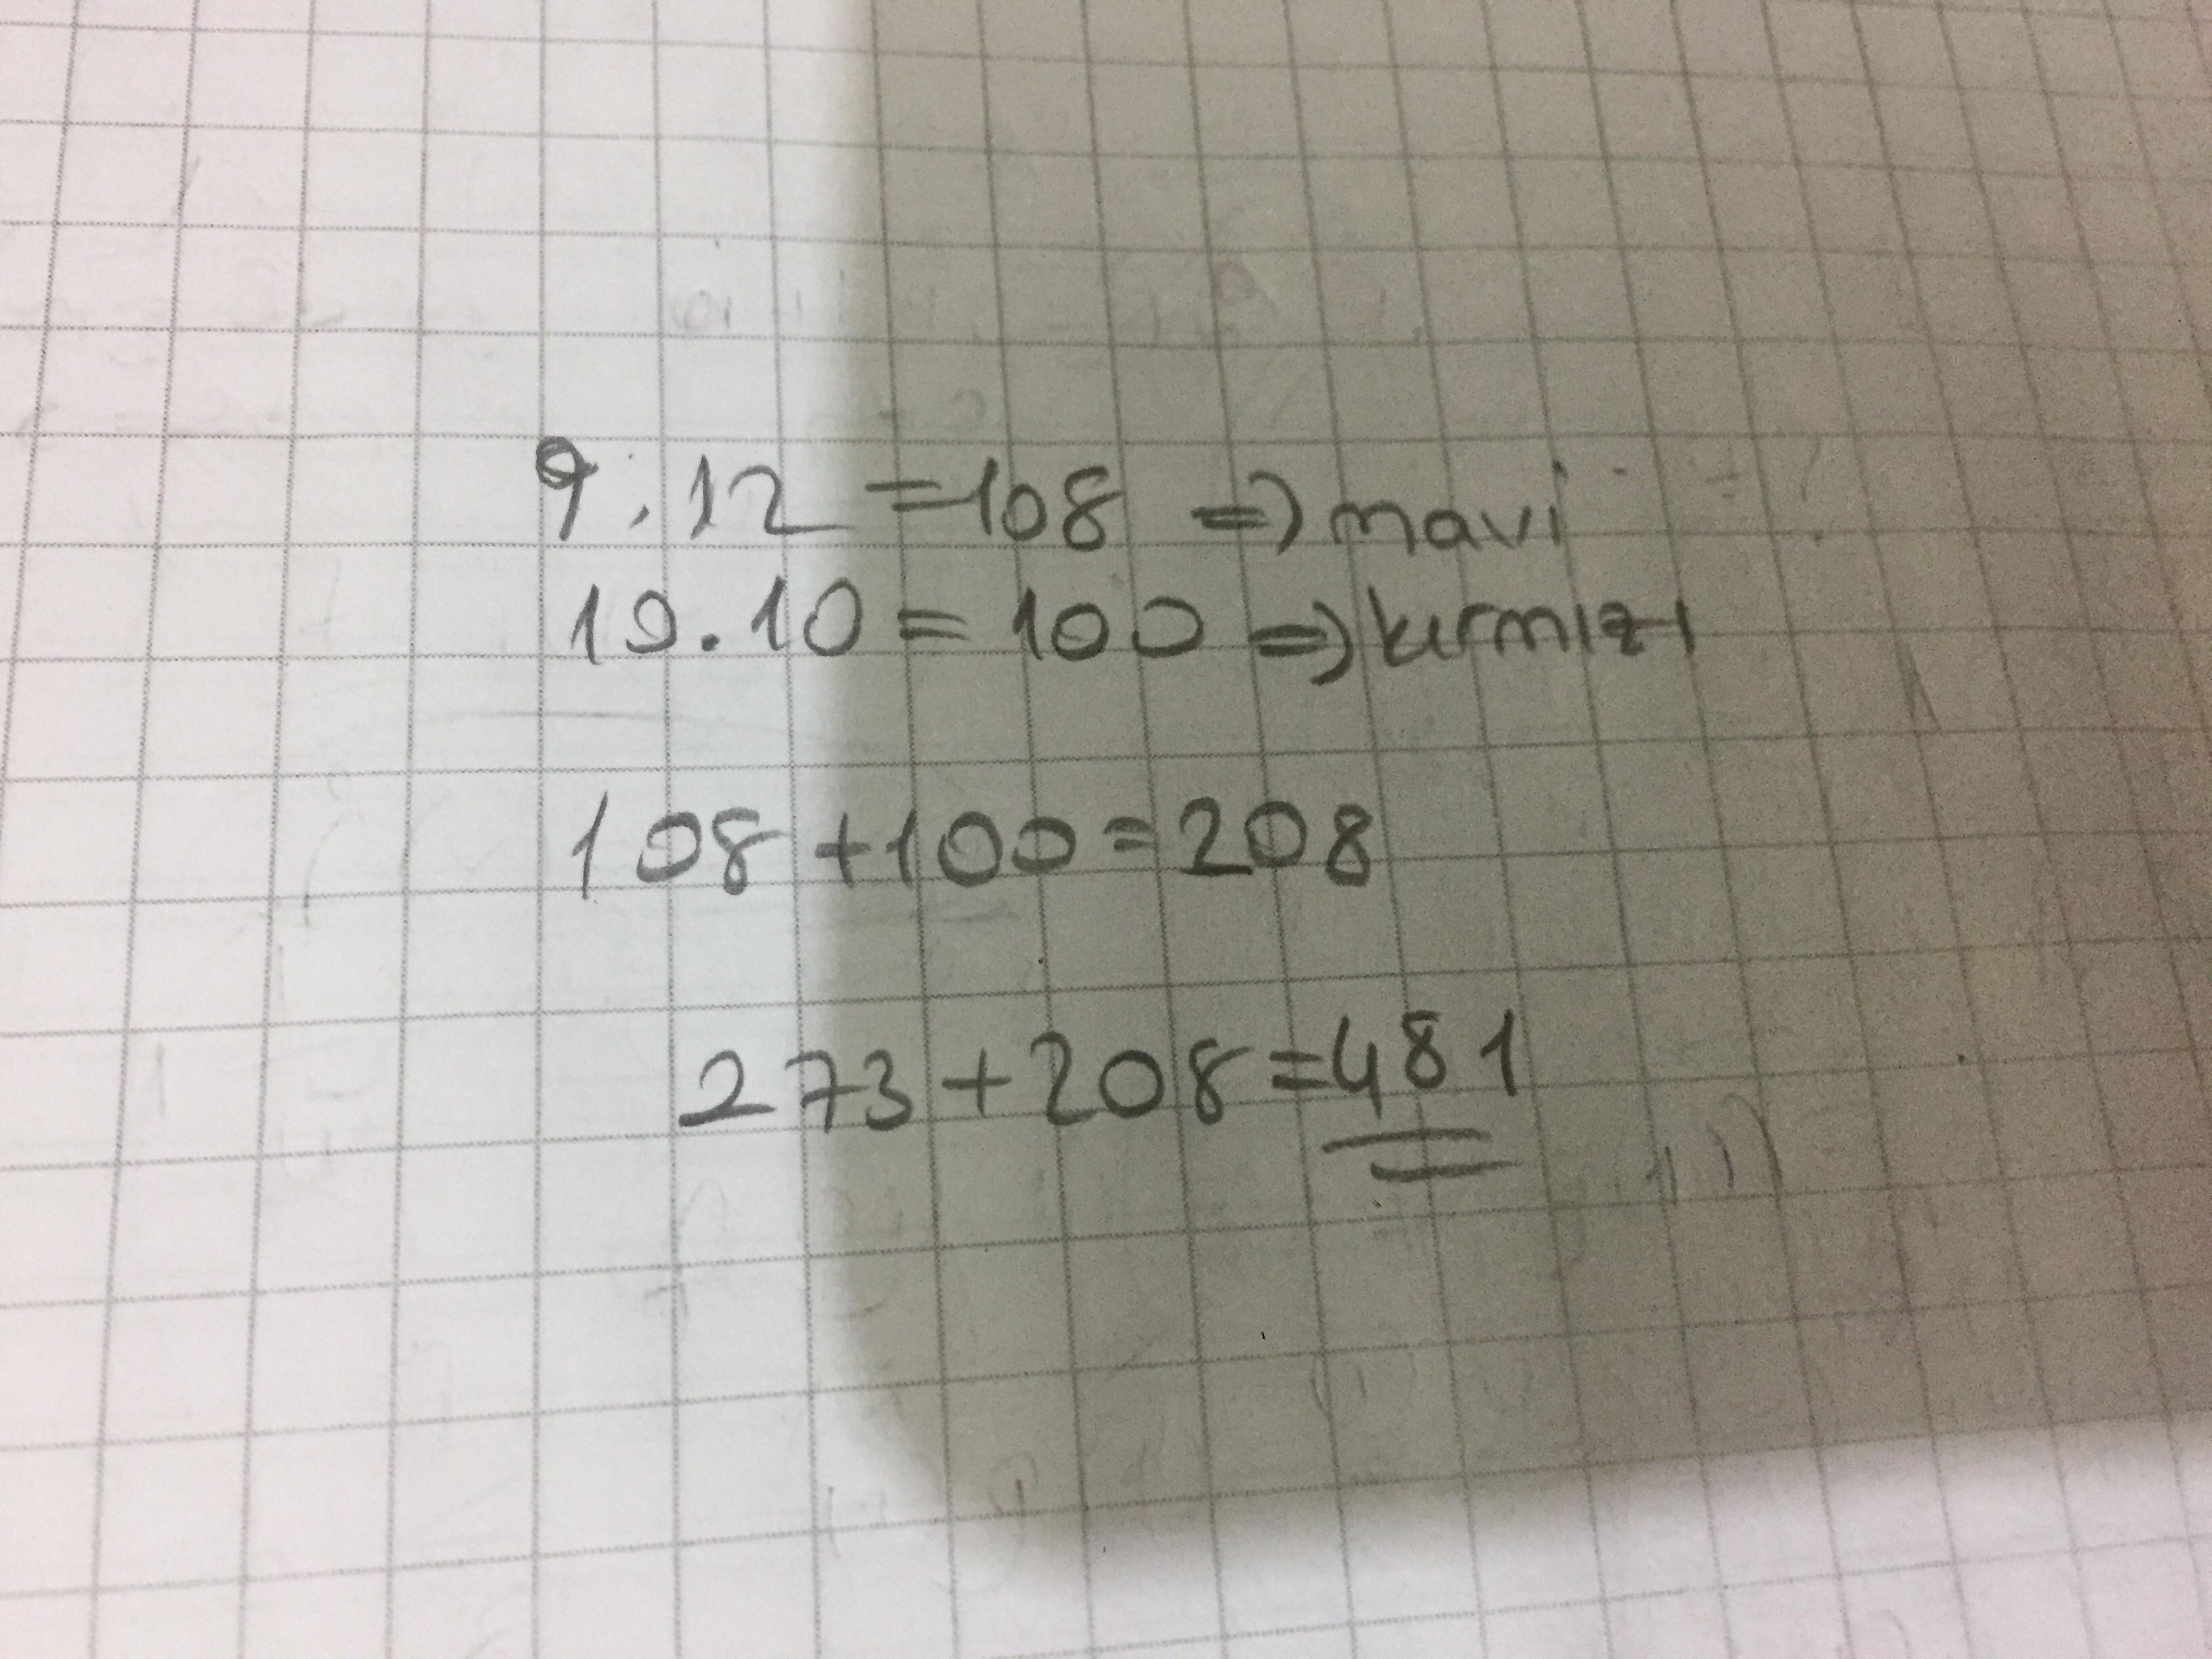 9.12=108 => mavi
10.10=100 => kırmızı
108+100=208
273+208=481